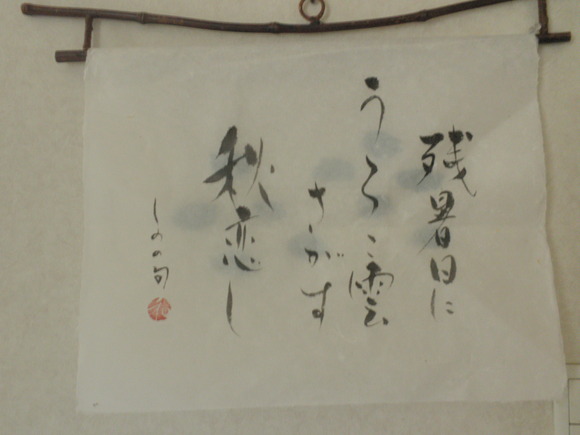 残暑日に
うろこ雲
さがす
秋恋し
しのの句